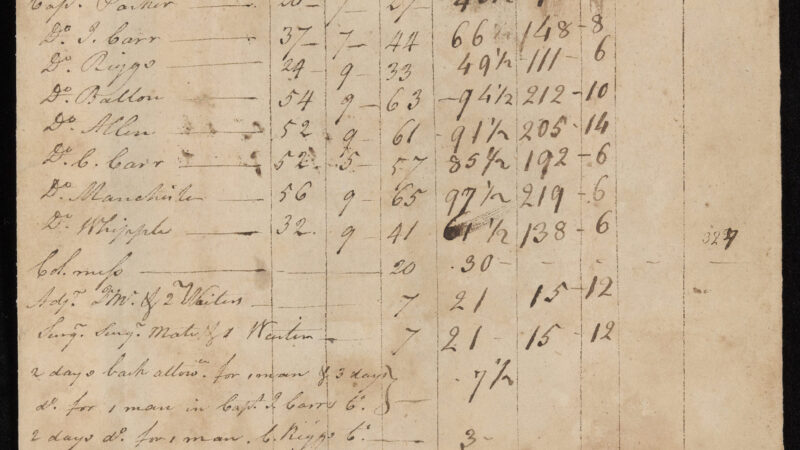 Capt. Parker — 20 - 7 - 27 -
Do. J. Carr — 37 - 7 - 44 66 - 148 - 8
Do. Riggs — 24 - 9 - 33 49 1/2 - 111 - 6
Do. Ballou — 54 9 - 63 - 94 1/2 212 - 10
Do. Allen — 52 9 - 61 - 91 1/2 205 - 14
Do. C. Carr — 52 - 5 - 57 85 1/2 192 - 6
Do. Manchester — 56 9 - 65 97 1/2 219 - 6
Do. Whipple — 32 - 9 - 41 61 1/2 138 - 6
327
Col. mess — 20 30 -
Adjt. Qr. Mr. & 2 Waiters — 7 21 15 - 12
Surgn. Surgn. Mate & 1 Waiter — 7 21 - 15 - 12
2 days back allowce. for 1 man & 3 days } — 7 1/2
do. for 1 man in Capt. J. Carrs Co.
2 days do. for 1 man C. Riggs Co. — 3 -